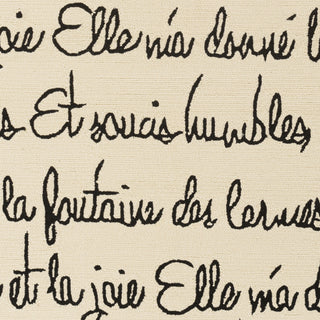 joie Elle m'a donné l
s Et soucis humbles,
la fontaine des larmes
et la joie Elle m'a d